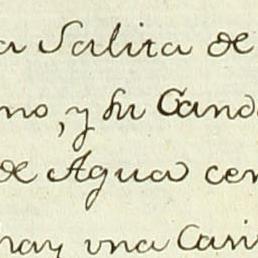 a Salita de
no, y su Cand
de Agua cer
hay una Cari